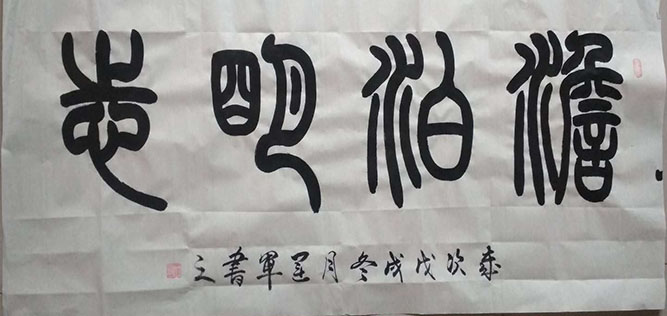 澹泊明志
歲次戊戌冬月軍書之